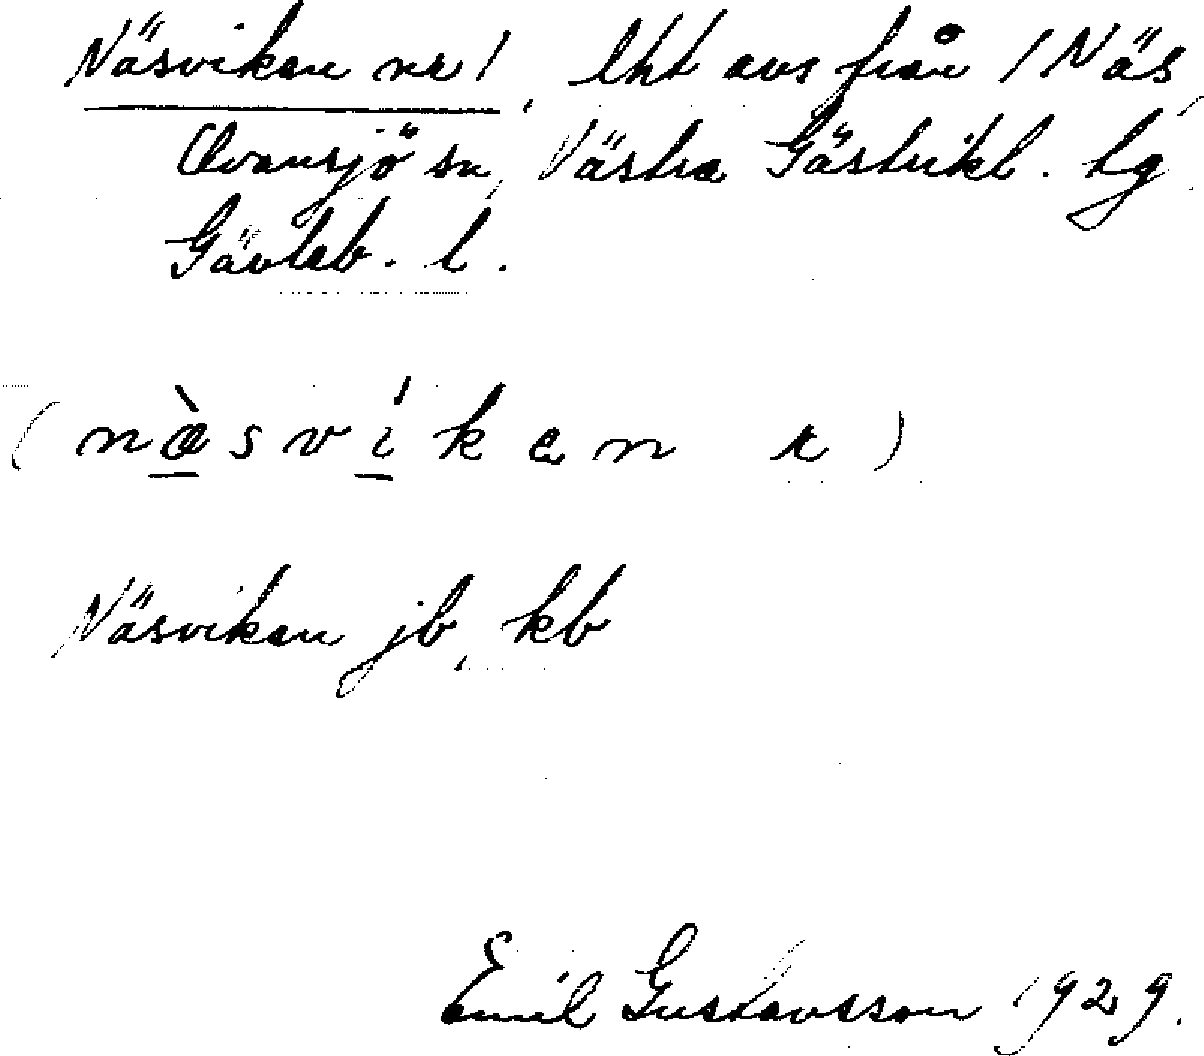 Näsviken nr 1, lht avs från 1 Näs,
Ovansjö sn, Västra Gästrikl. tg
Gävleb. l.
(næ̀svíken r)
Näsviken jb, kb
Emil Gustavsson 1929.